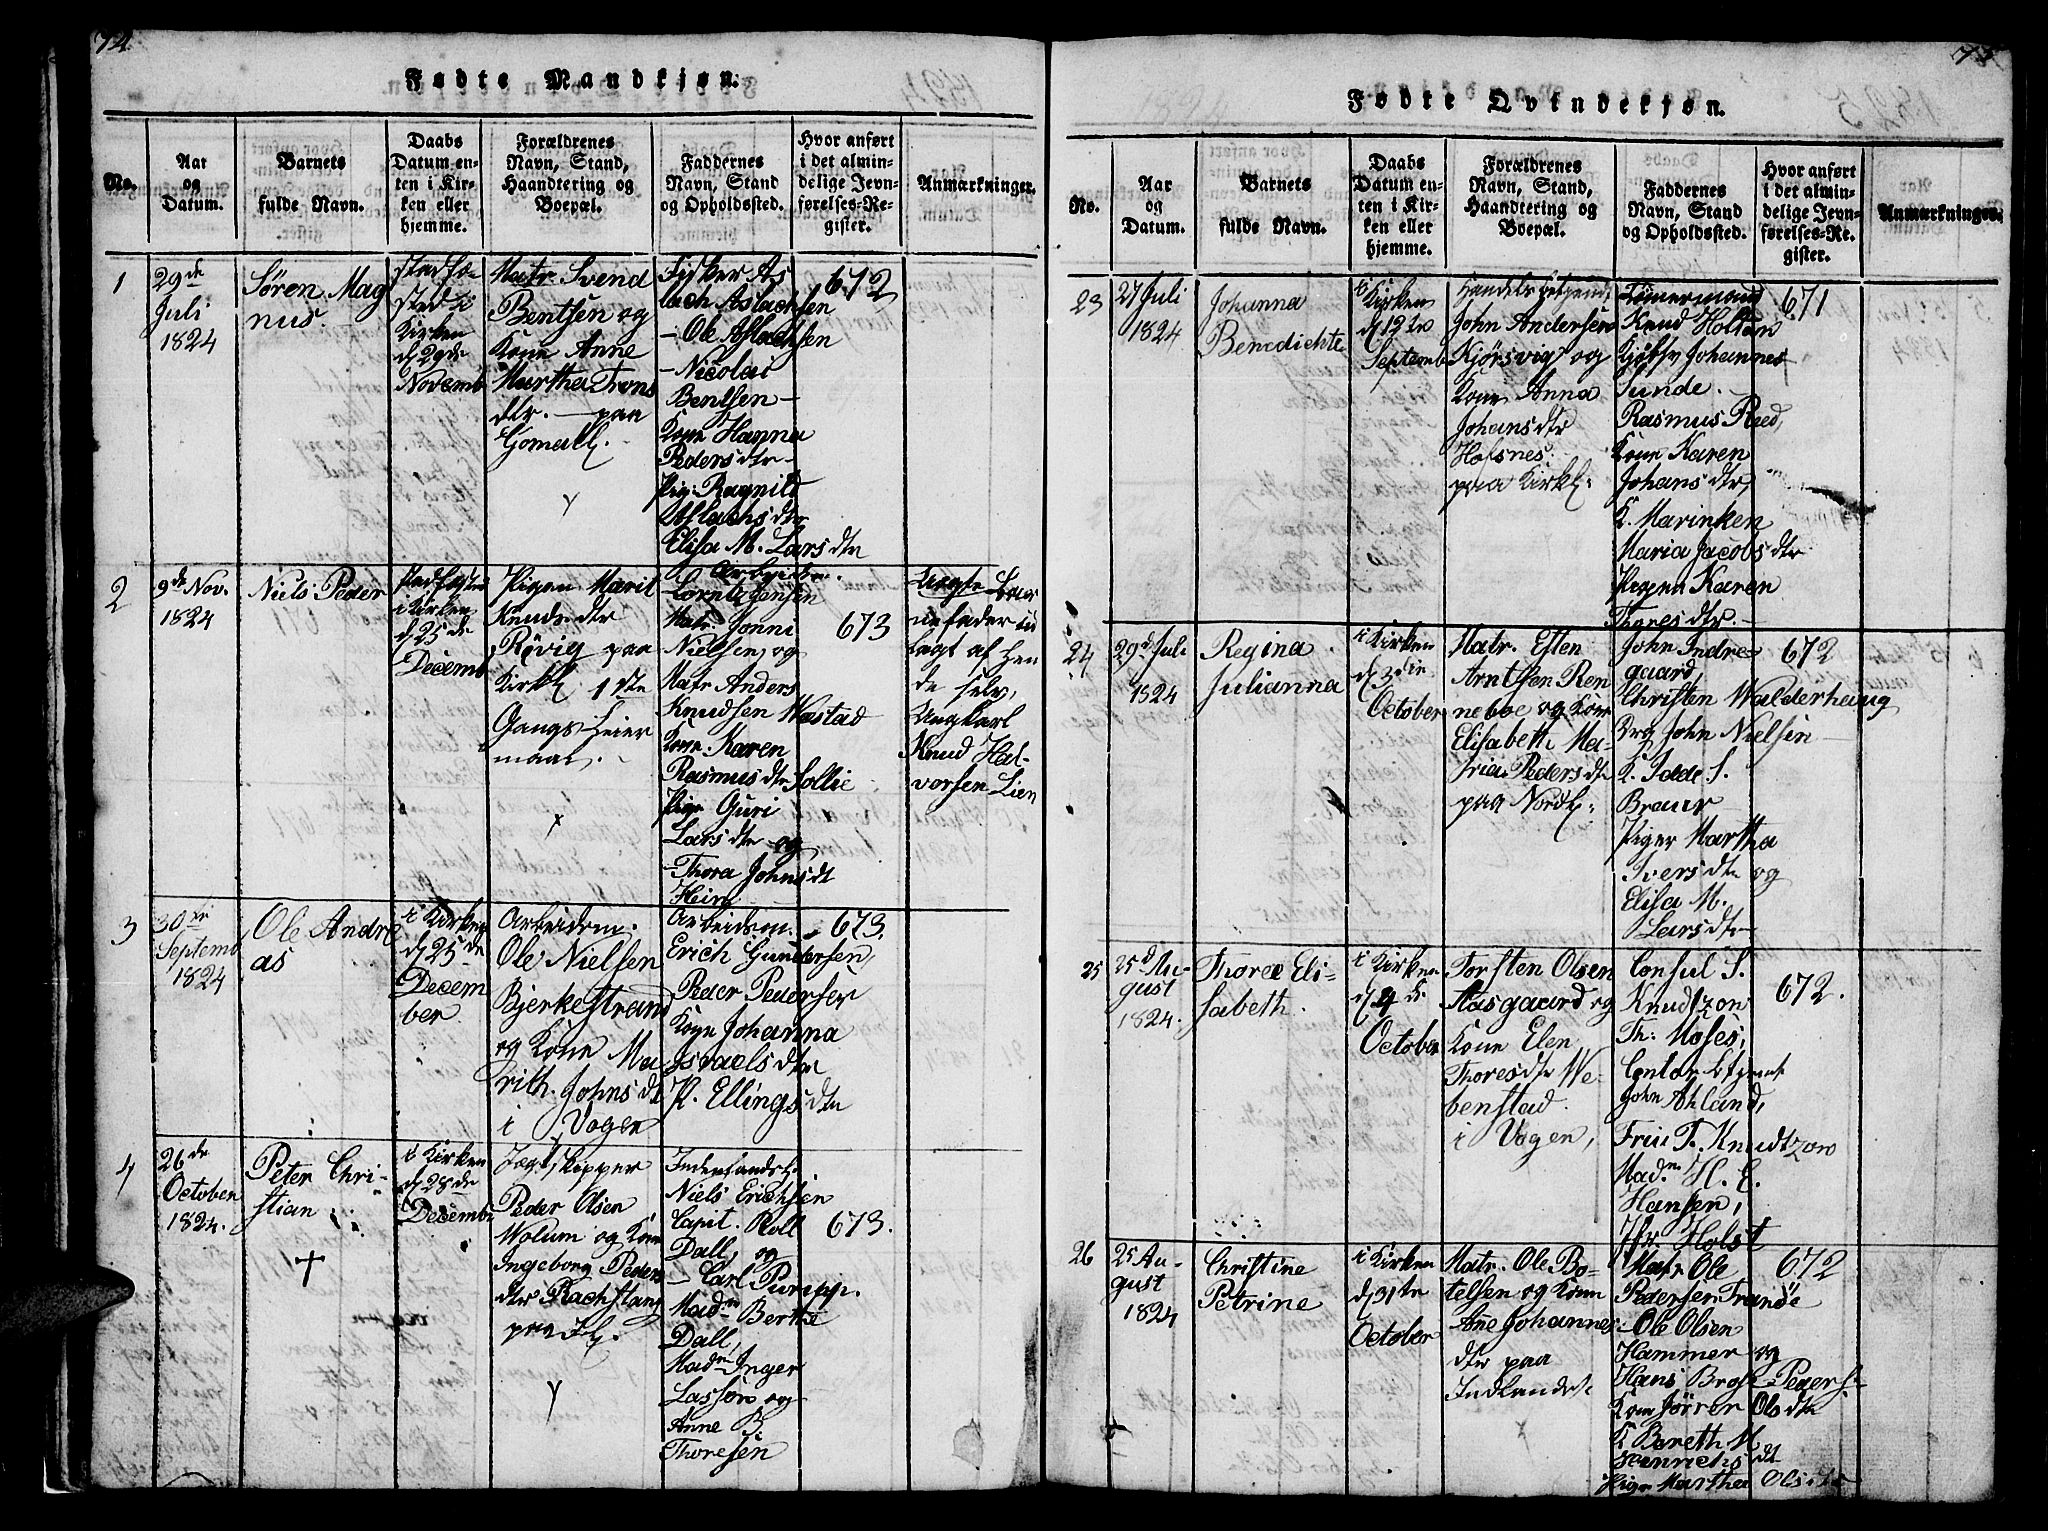 74
Fødte Mandkjøn.
No.
Aar
og
Datum.
Barnets
fulde Navn.
Daabs
Datum en-
ten i Kir-
ken eller
hjemme.
Forældrenes
Navn, Stand,
Haandtering og
Boepæl.
Faddernes
Navn, Stand
og Opholdssted.
Hvor anført
i det almin-
delige Jevn-
førelses-Re-
gister.
Anmærkninger.
1
29de
Juli
1824
Søren Mag
nus.
stadfæ
sted i
Kirken
d 29de
Novemb
Matr. Svend
Bentsen og
Kone Anne
Martha Trons
dtr. — paa
Gomall.
Fisker As
lach Aslachsen
— Ole Aslachsen
— Nicolai
Bentsen —
Kone Hanna
Pedersdtr —
Pig: Ragnild
Aslachsdtr
Elisa M. Larsdtr
672
2
9de Nov.
1824
Niels Peder
stadfæstet
i Kirken
d 25de
Decemb
Pigen Marit
Knudsdtr
Røvig paa
Kirkl 1ste
Gangs Leier
maal.
Arbeidsm.
Lornts Jensen
Matr. Jonni
Nielsen, og
Matr Anders
Knudsen Wastad
Kone Karen
Rasmusdtr Sollie
Pige Guri
Larsdtr og
Thora Johnsdt
Hein
673
Uægte Bar
nefader ud
lagt af Hen
de selv,
Ungkarl
Knud Hal-
vorsen Lien
3
30te
Septemb
1824
Ole Andre
as
i Kirken
d 25de
Decem
ber
Arbeidsm.
Ole Nielsen
Bjerkestrand
og Kone Ma
rith Johnsdt
i Vogen
Arbeidsm.
Erich Gundersen,
Peder Pedersen
Kone Johanna
Israelsdtr
P. Ellingsdtr
673.
4
26de
October
1824.
Peter Chri-
stian
i Kirken
d 28de
Decembr
Jægtskipper
Peder Olsen
Wolum og Kone
Ingeborg Peders
dtr Rachstang
paa Il.
Niels Erichsen
Capit. Roll
Dall, og
— Carl Purupp.
Madm Berthe
Dall,
Madm Inger
Lassen og
Anne B.
Thoresen
673.
75
Fødte Qvindekjøn.
No.
Aar
og
Datum.
Barnets
fulde Navn.
Daabs
Datum en-
ten i Kir-
ken eller
hjemme.
Forældrenes
Navn, Stand,
Haandtering og
Boepæl.
Faddernes
Navn, Stand
og Opholdssted.
Hvor anført
i det almin-
delige Jevn-
førelses-Re-
gister.
Anmærkninger.
23
27 Juli
1824
Johanna
Benedichte
i Kirken
d 12te
Septemb
Handelsbetjendt
John Andersen
Kjørsvig og
Kone Anna
Johansdtr
Hofsnes.
paa Kirkl.
Tømermand
Knud Holten
Kjøbm Johannes
Sunde.
Rasmus Reed,
Kone Karen
Johansdtr,
K. Marinken
Maria Jacobsdtr
Pigen Karen
Thoresdtr. —
671
24
29d Juli
1824
Regina
Julianna
i Kirken
d 3die
October
Matr. Esten
Arntsen Ren
neboe og Kone
Elisabeth Ma-
fria Pedersdtr
paa Nordl.
John Indre-
gaard,
Christen Walderhaug
Drg John Nielsen
K. Idde S.
Braur
Piger Martha
Iversdtr og
Elisa M.
Larsdtr
672
25
25d Au-
gust
1824.
Thoree Eli-
sabeth.
i Kirken
d 4de
October
Torsten Olsen
Aasgaard og
Kone Elen
Thoresdtr We-
benstad.
i Vogen,
Consul S.
Knudtzon
Th: Moses,
Contorbetjent
John Ahland,
Frue F. Knudtzon
Madm. H. E.
Hansen,
Jfr Holst
672.
26
25 Au-
gust
1824
Christine
Petrine
i Kirken
d 31te
October
Matr. Ole Bo-
telsen og Kone
Ane Johannes-
dtr paa
Indlandet
Matr Ole
Pedersen Trande
— Ole Olsen
Hammer og
Hans Brose Peders-
Kone Jørrer Olsdtr
K Bereth M
Henrichsdt
Pige Martha Olsdtr
672